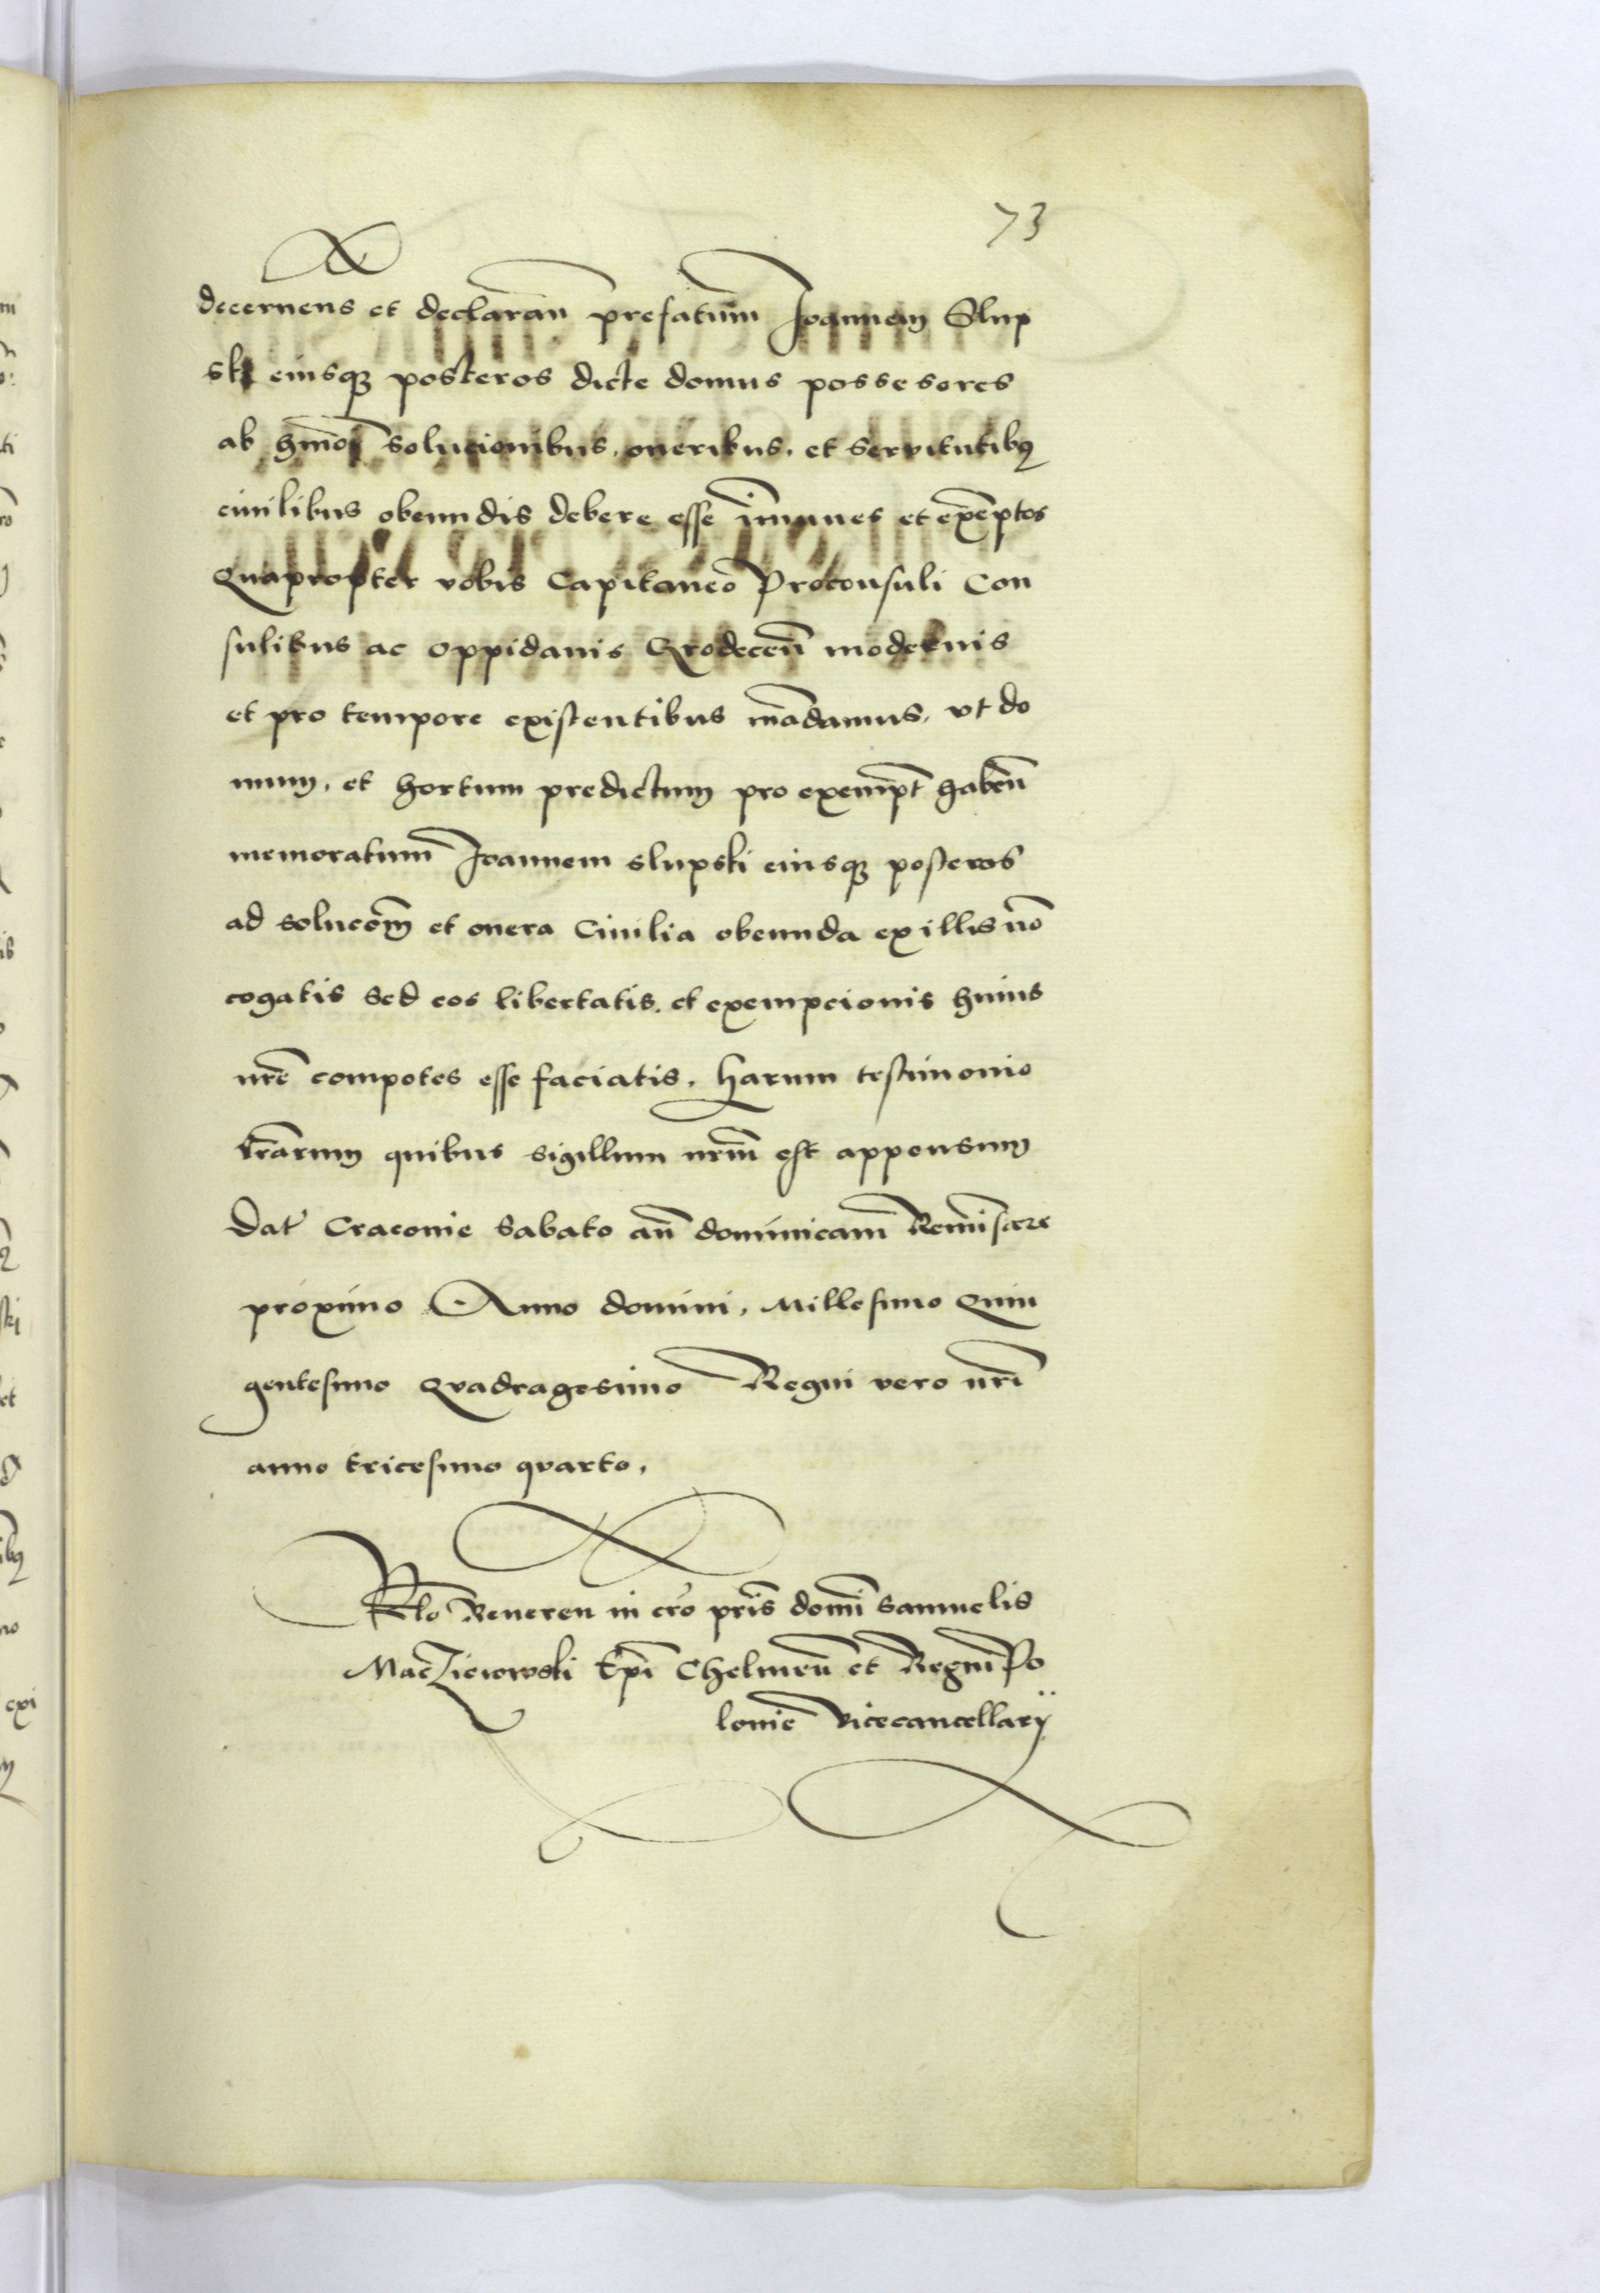 73
decernens et declaran̄ prefatum̄ Joannem Slup
ski eiusqꝫ posteros dicte domus possesores
ab hm̄oi solucionibus, oneribus, et servitutibꝫ
ciuilibus obeundis debere esse īmunes et exēptos
Quapropter vobis Capitaneo Proconsuli Con
sulibus ac oppidanis Grodecen̄ modernis
et pro tempore existentibus mādamus, vt do
mum, et hortum predictum pro exempt̄ haben̄
memoratum̄ Joannem slupski eiusqꝫ posteros
ad solucōm̄ et onera Ciuilia obeunda ex illis nō
cogatis sed eos libertatis, et exempcionis huius
nr̄e compotes esse faciatis, harum testimonio
lr̄arum quibus sigillum nr̄m est appensum
Dat̄ Cracouie Sabato an̄ dominicam̄ Remīscere
proximo Anno domini, Millesimo Quin
gentesimo Quadragesimo Regni vero nr̄i
anno tricesimo quarto,
Rlō Reueren in cr̄o pr̄is domī Samuelis
Macziejowski Ep̄i Chelmen̄ et Regni Po
lonie Vicecancellarij